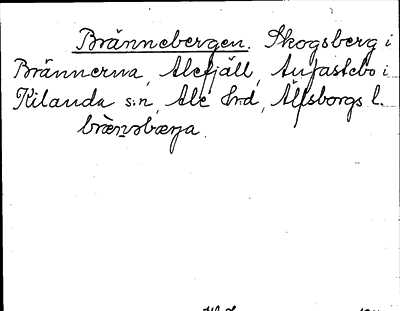 Brännebergen. Skogsberg i
Brännerna, Alefjäll, Anfastebo i
Kilanda s:n, Ale hrd, Älfsborgs l.